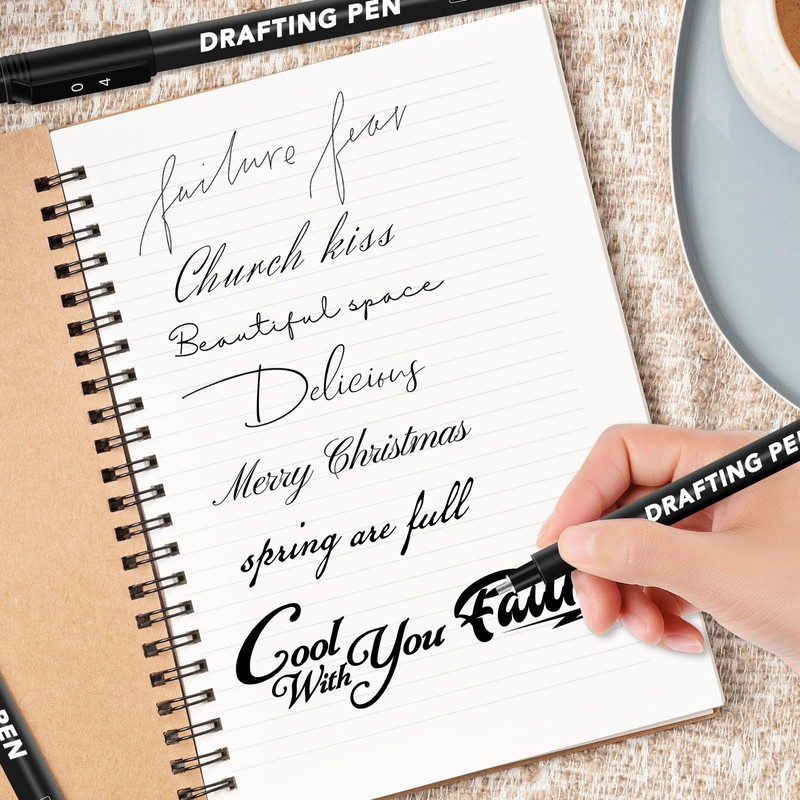 DRAFTING PEN
04
failure fear
Church kiss
Beautiful space
Delicious
Merry Christmas
spring are full
DRAFTING PEN
Cool
With You
PEN